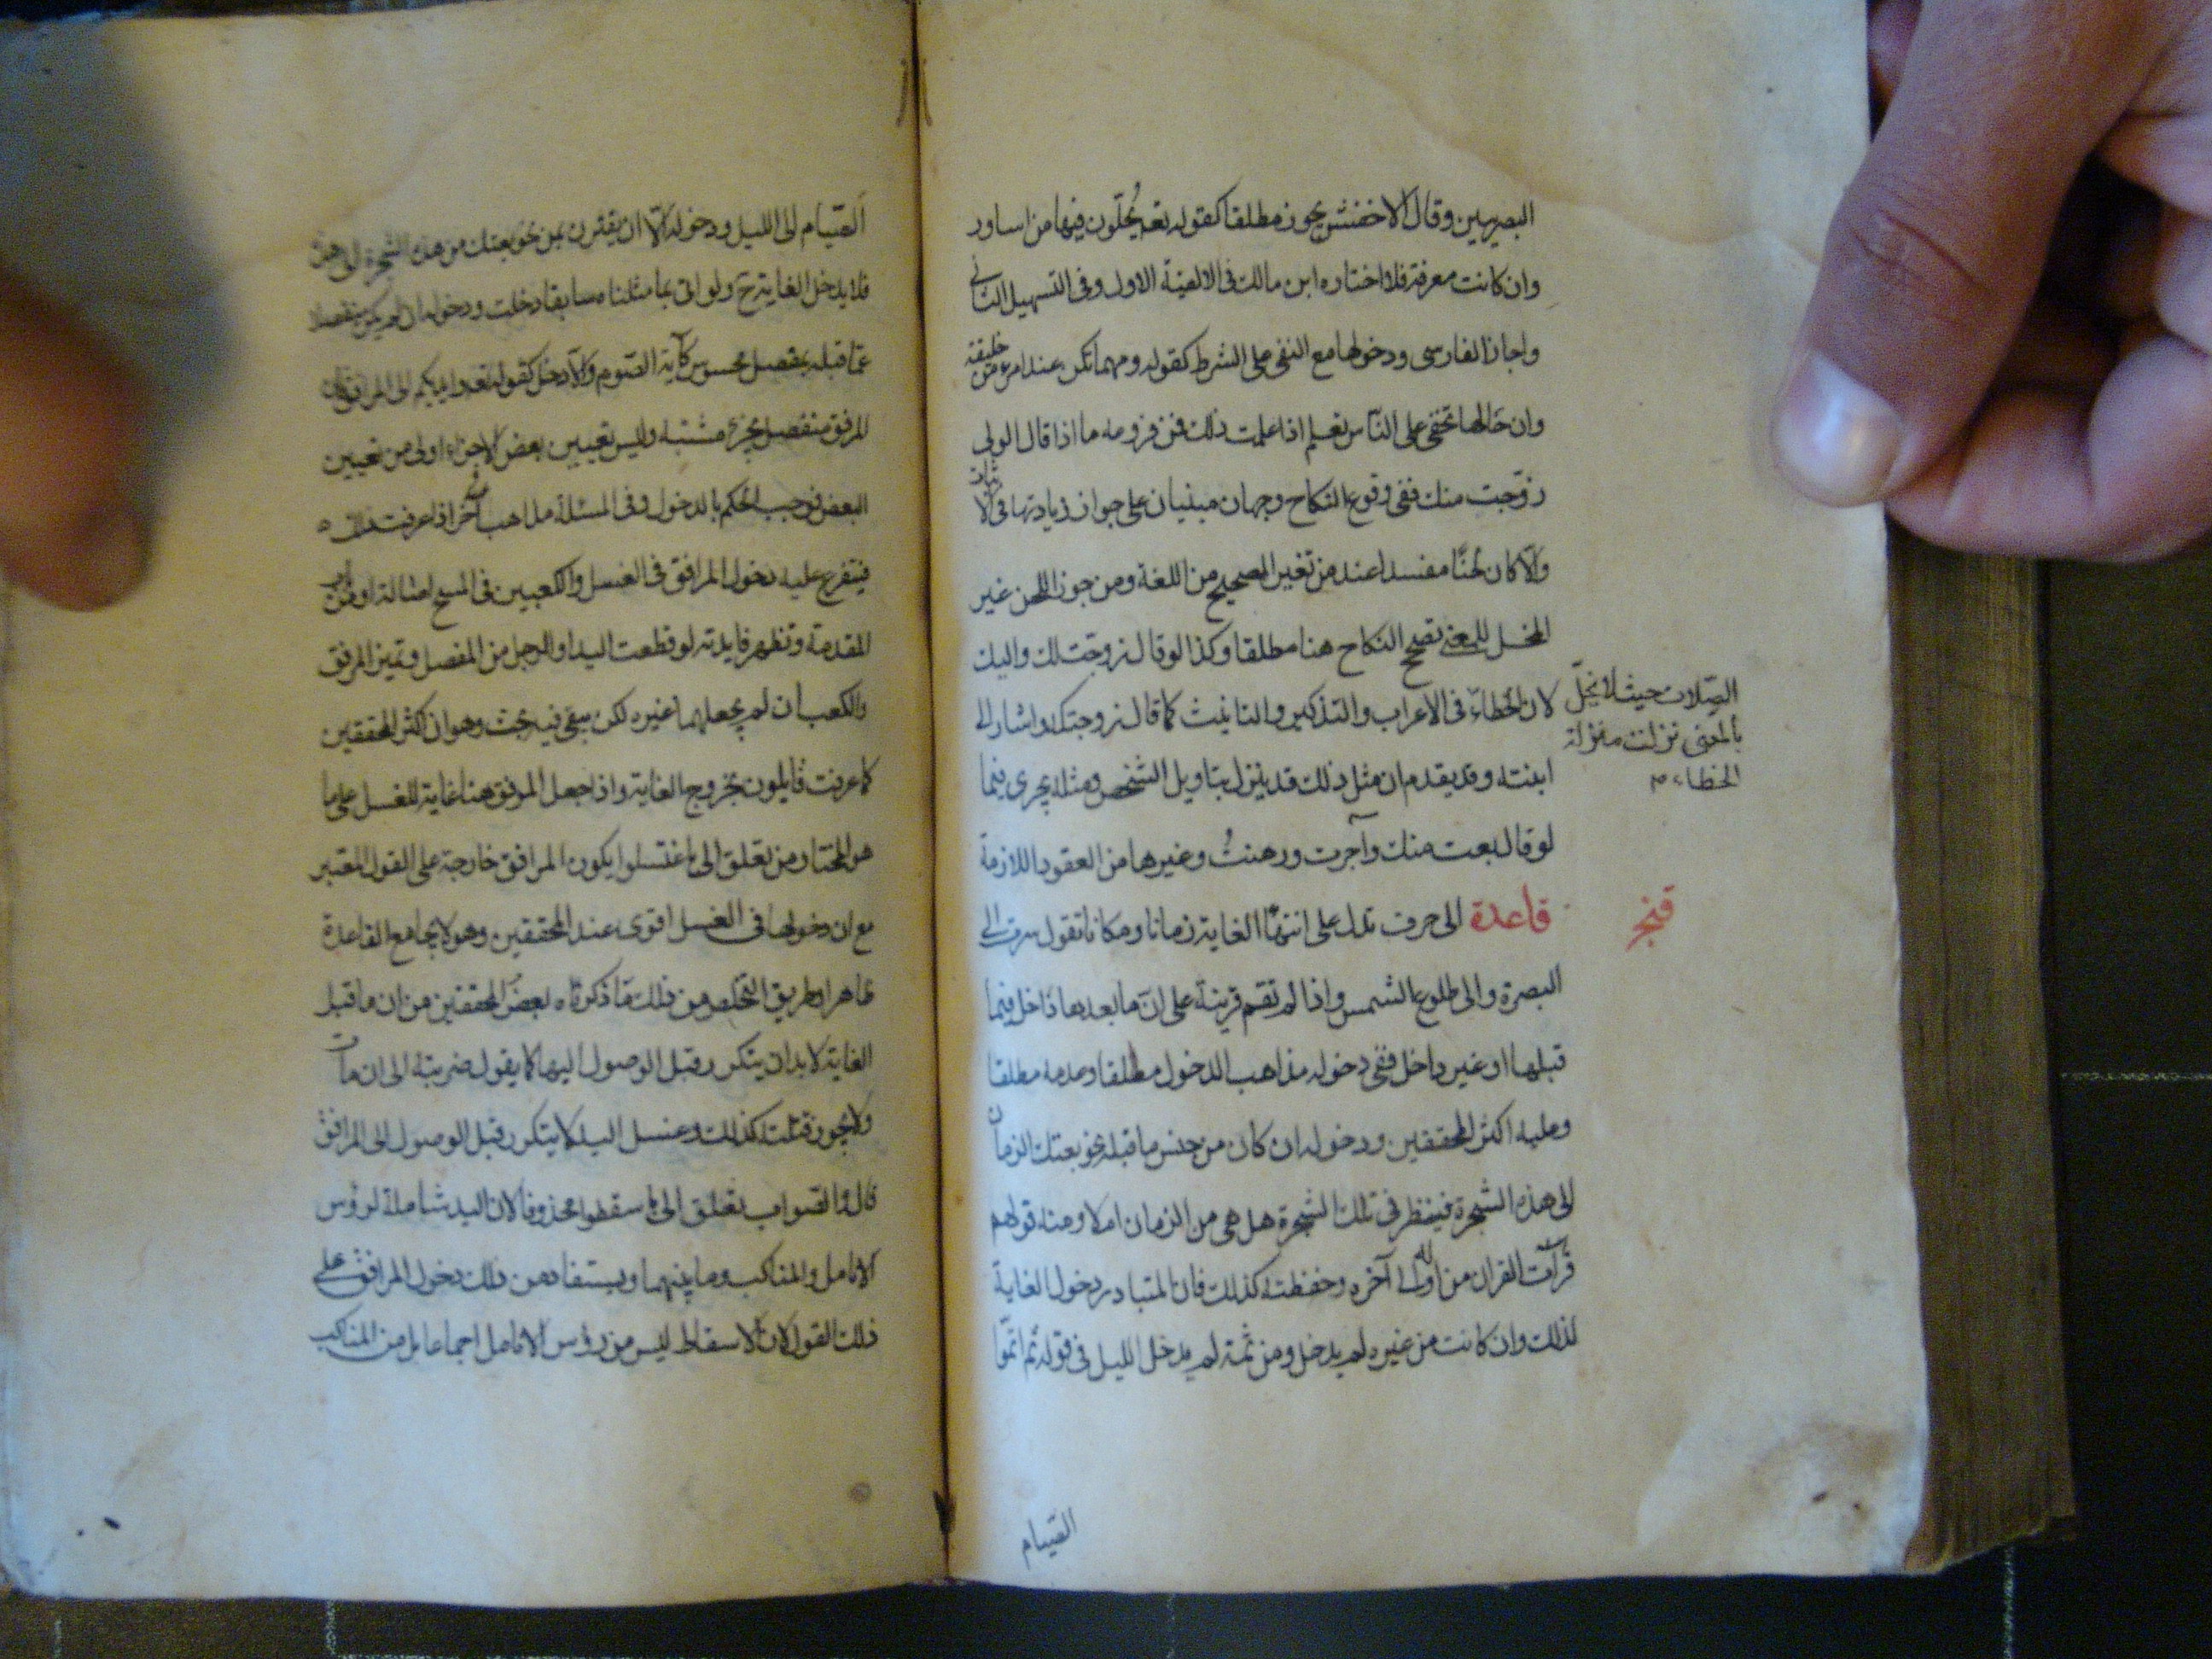 البصريين وقال الاخفش يجوز مطلقا كقوله تعه يُحلّون فيها من اساور
وان كانت معرفة فلا اختاره ابن مالك في الالفيّة الاول وفى التسهيل الثانى
واجاز الفارسى ودخولها مع النفى على الشرط كقوله ومهما تكن عند امرء من خليقة
وان خالها تخفى على الناس تعلم اذا علمت ذلك فمن فروعه ما اذا قال الولى
زوّجت منك ففى وقوع النكاح وجهان مبنيان على جواز زيادتها فى الاثبات
والّا كان لحنًا مفسدا عند من تغير الصحيح من اللغة ومن جوز اللحن غير
المخل للمعنى تصح النكاح هنا مطلقا وكذا لو قال زوجت لك واليك
لان الخطاء فى الاعراب والتذكير والتانيث كما قال زوجتك واشار الى
الصّلات حيث لا تخلّ
بالمعنى نزلت منزلة
الخطاء م
ابنته وقد يقدم ان مثل ذلك قد ينزل بتاويل الشخص ومثله يجرى فيما
لو قال بعت منك وآجرت ورهنتُ وغيرها من العقود اللازمة
قاعدة الى حرف تدل على انتهاء الغاية زمانا ومكانا تقول سرت الى
البصرة والى طلوع الشمس واذا لم تقم قرينة على ان ما بعدها داخل فيما
قبلها او غير داخل ففى دخوله مذاهب الدخول مطلقا وعدمه مطلقا
وعليه اكثر المحققين ودخوله ان كان من جنس ما قبله نحو بعتك الرمان
الى هذه الشجرة فينظر فى تلك الشجرة هل هى من الرمان ام لا ومنه قولهم
قرأت القران من اوله الى آخره وحفظته كذلك فان المتبادر دخول الغاية
لذلك وان كانت من غيره لم يدخل ومن ثمة لم يدخل الليل فى قوله ثم اتمّوا
الصّيام
الصّيام الى الليل ودخوله الّا ان يقترن بمن نحو بعتك من هذه الشجرة الى هذه
فلا يدخل الغاية ح ولو اتى بما مثلناه سابقا دخلت ودخوله ان لم يكن منفصلا
عمّا قبله بمفصل محسوس كآية الصّوم والّا دخل كقوله تعه وايديكم الى المرافق فان
المرفق منفصل بجزء مشتبه وليس تعيين بعض الاجزاء اولى من تعيين
البعض فوجب الحكم بالدخول وفى المسئلة مذاهب أخر اذا عرفت ذلك
فيتفرع عليه دخول المرافق فى الغسل والكعبين فى المسح امثالة او من باب
المقدمة وتظهر فايدته لو قطعت اليد او الرجل من المفصل وتميز المرفق
والكعب ان لم يجعلهما غيره لكن يبقى فيه بحث وهو ان اكثر المحققين
كما عرفت قايلون بخروج الغاية واذا جعل المرفق هنا غاية للغسل على ما
هو المختار ومن تعلق الى باغتسلوا يكون المرافق خارجة على القول المعتبر
مع ان دخولها فى الغسل اقوى عند المحققين وهو لا يجامع القاعدة
ظاهرا وطريق التخلص من ذلك ما ذكرناه بعض المحققين من ان ما قبل
الغاية لا بد ان يتكرر قبل الوصول اليها كما يقول ضربته الى ان مات
ولا يجوز قتلت كذلك وغسل اليد لا يتكرر قبل الوصول الى المرافق
قال والصواب تعلق الى باسقطوا محذوفا لان اليد شاملة لرؤس
الانامل والمناكب وما بينهما ويستفاد من ذلك دخول المرافق على
ذلك القول لان الاسقاط ليس من رؤس الانامل اجماعا بل من المناكب